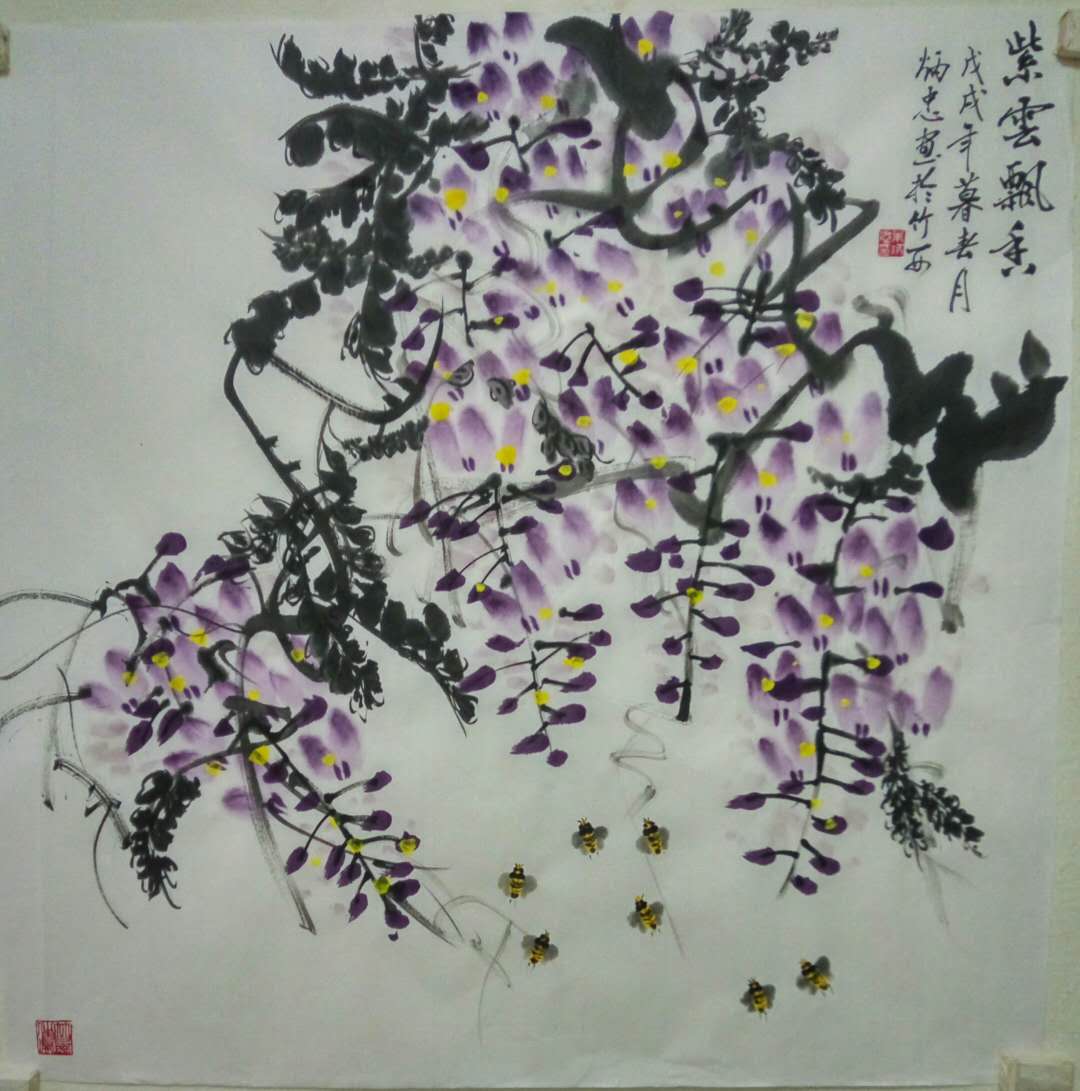 紫雲飄香
戊戌年暮春月
炳忠画於竹西